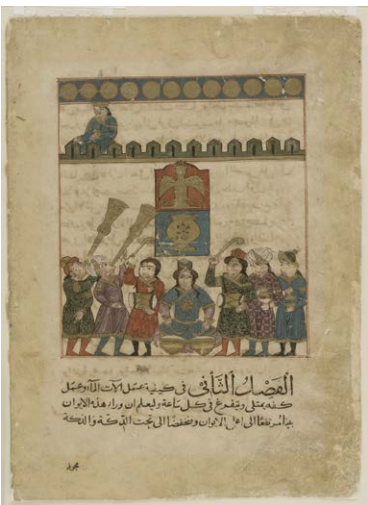 الفصل الثاني في كيفية عمل آلات الماء وعمل
كفة يمتلئ ويتفرغ في كل ساعة وليعلم ان وراء هذه الايوان
الى اعلى الايوان الى تحت الدكة والدكة